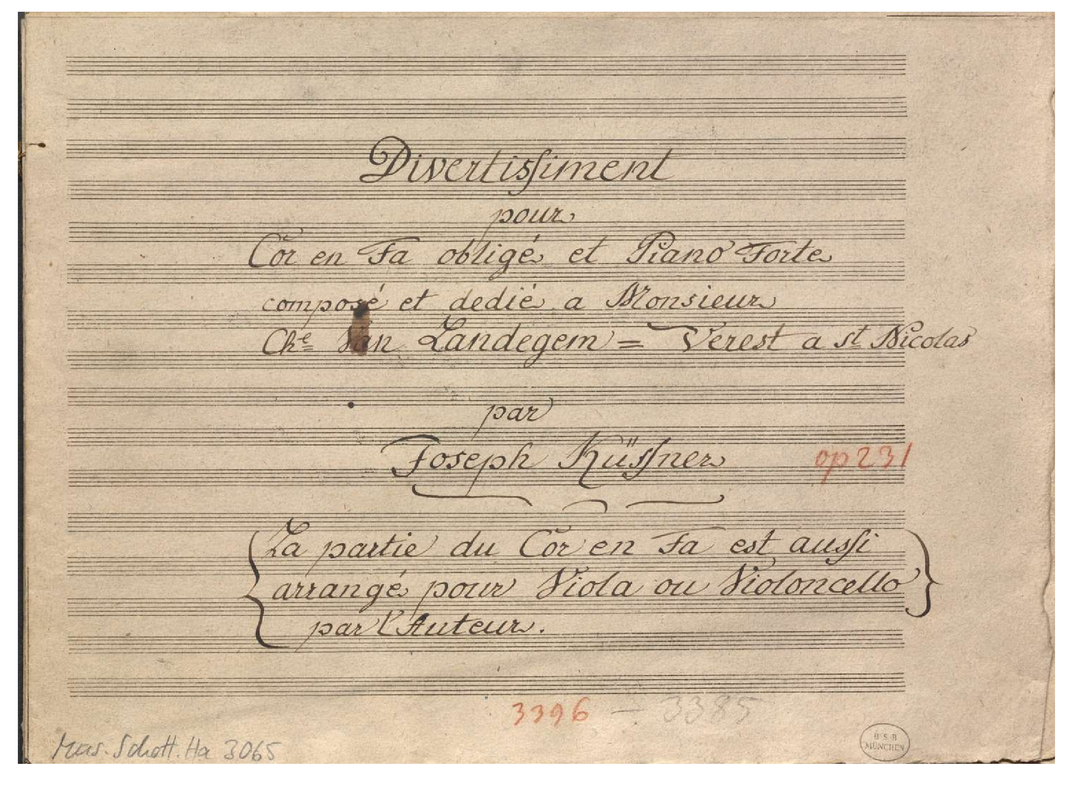 Divertiſsiment
pour
Cor en Fa obligé et Piano Forte
composé et dedié a Monsieur
Che Van Landegem = Verest a st Nicolas
par
Joseph Küſsner op 231
La partie du Cor en Fa est auſsi
arrangé pour Viola ou Violoncello
par l'Auteur.
3396 – 3385
Mus. Schott. Ha 3065
BSB
MÜNCHEN